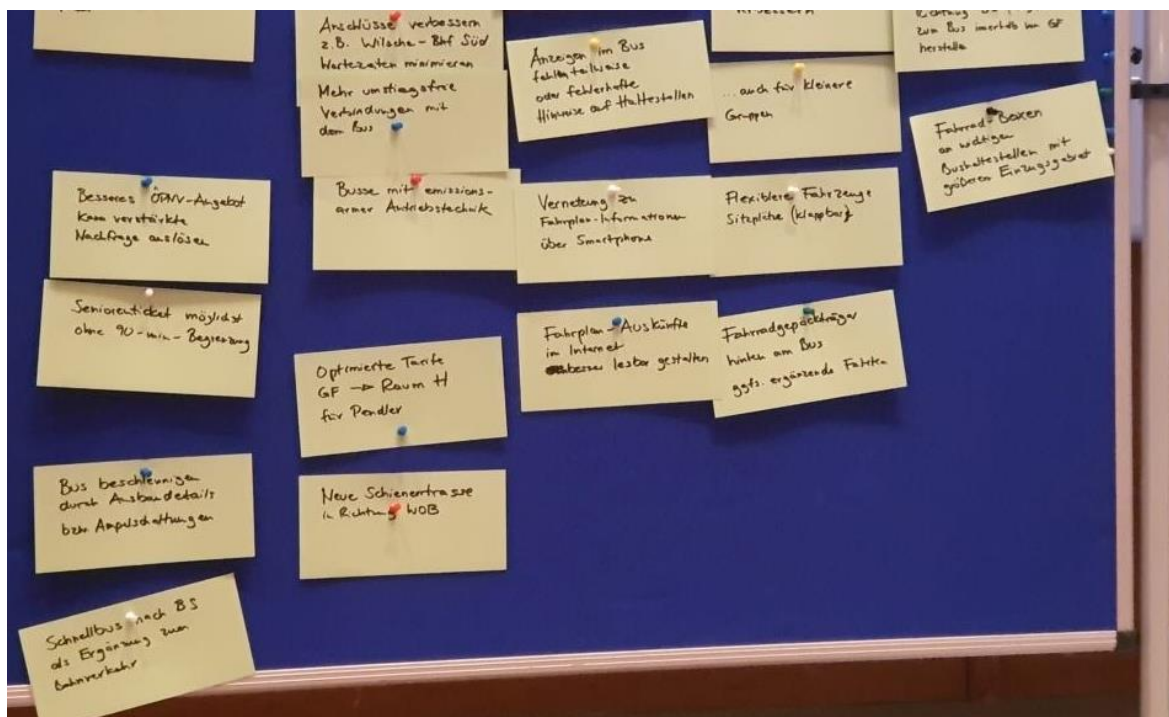 Besseres ÖPNV-Angebot
kann verstärkte
Nachfrage auslösen
Seniorenticket möglichst
ohne 90-min-Begrenzung
Bus beschleunigen
durch Ausbaudetails
bzw. Ampelschaltungen
Schnellbus nach BS
als Ergänzung zum
Bahnverkehr
Anschlüsse verbessern
z.B. Wilsche - Bhf Süd
Wartezeiten minimieren
Mehr umstiegsfreie
Verbindungen mit
dem Bus
Busse mit emissions-
armer Antriebstechnik
Optimierte Tarife
GF → Raum H
für Pendler
Neue Schienentrasse
in Richtung WOB
Anzeigen im Bus
fehlen teilweise
oder fehlerhafte
Hinweise auf Haltestellen
Vernetzung zu
Fahrplan-Informationen
über Smartphone
Fahrplan-Auskünfte
im Internet
besser lesbar gestalten
...auch für kleinere
Gruppen
Flexiblere Fahrzeuge
Sitzplätze (klappbar)
Fahrradgepäckträger
hinten am Bus
ggfs. ergänzende Fahrten
zum Bus innerhalb von GF
herstellen
Fahrrad-Boxen
an wichtigen
Bushaltestellen mit
größerem Einzugsgebiet